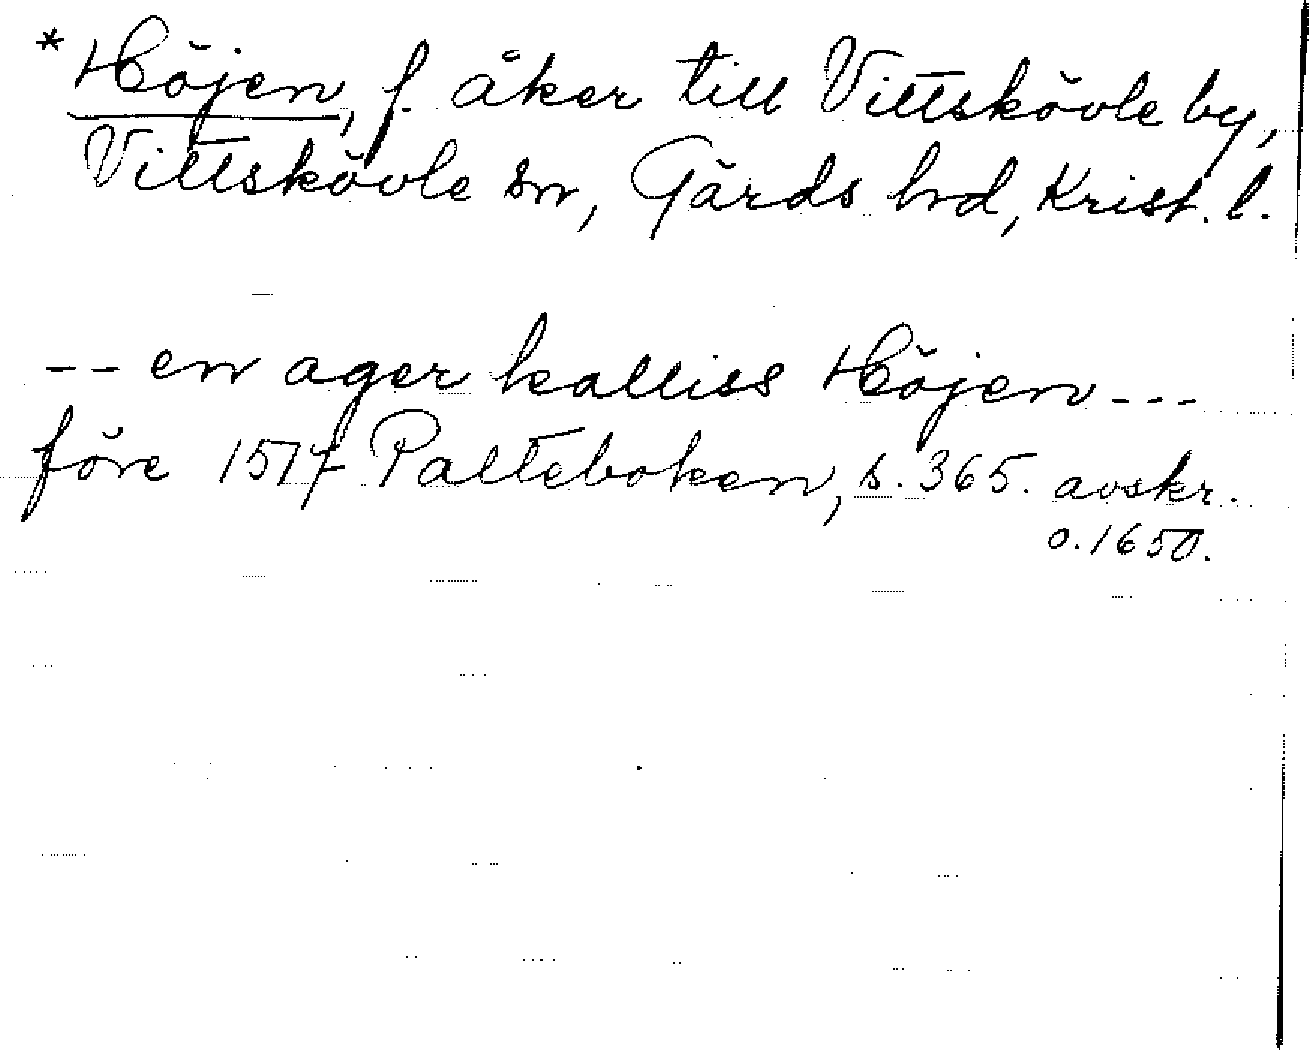 *Höjen, f. åker till Vittskövle by,
Vittskövle sn, Gärds hd, Krist. l.
-- en ager kalliss Höjen ---
före 1577 Palteboken, s. 365. avskr.
o. 1650.